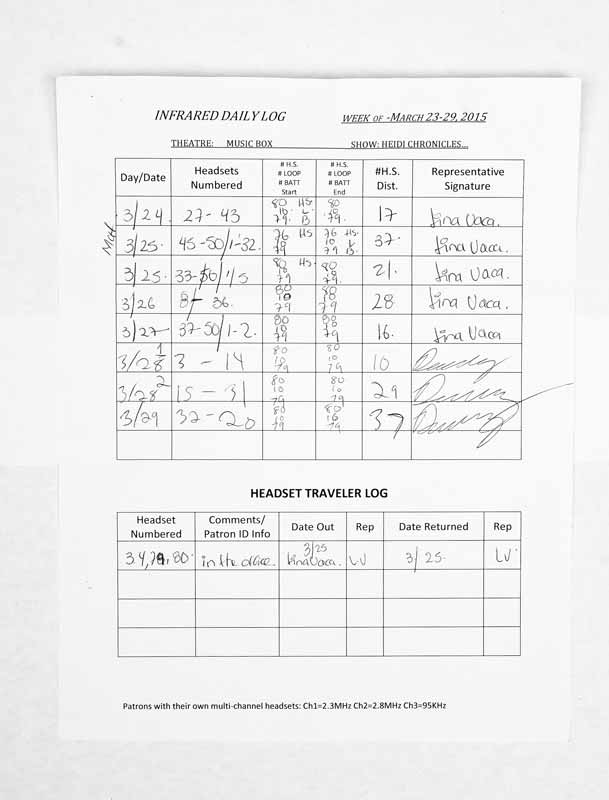 INFRARED DAILY LOG WEEK OF -MARCH 23-29, 2015
THEATRE: MUSIC BOX SHOW: HEIDI CHRONICLES...
Day/Date Headsets Numbered # H.S. # LOOP # BATT Start # H.S. # LOOP # BATT End #H.S. Dist. Representative Signature
3/24 27-43 80 HS 10 L 79. B 80 10 79. 17 Lina Vaca.
Mat 3/25. 45-50/1-32. 76 HS 10 79 76 HS 10 L 79 B. 37. Lina Vaca.
3/25. 33-50/1/5 80 HS. 10 79 80 10 79 21. Lina Vaca.
3/26 8- 36. 80 10 79 80 10 79 28. Lina Vaca.
3/27 37-50/1-2. 80 10 79 80 10 79 16. Lina Vaca
3/28 1 3 - 14 80 10 79 80 10 79 10
3/28 2 15 - 31 80 10 79 80 10 79 29
3/29 32-20 80 10 79 80 10 79 37
HEADSET TRAVELER LOG
Headset Numbered Comments/ Patron ID Info Date Out Rep Date Returned Rep
3.4,79,80. in the office. 3/25 Lina Vaca. LV 3/25. LV.
Patrons with their own multi-channel headsets: Ch1=2.3MHz Ch2=2.8MHz Ch3=95KHz